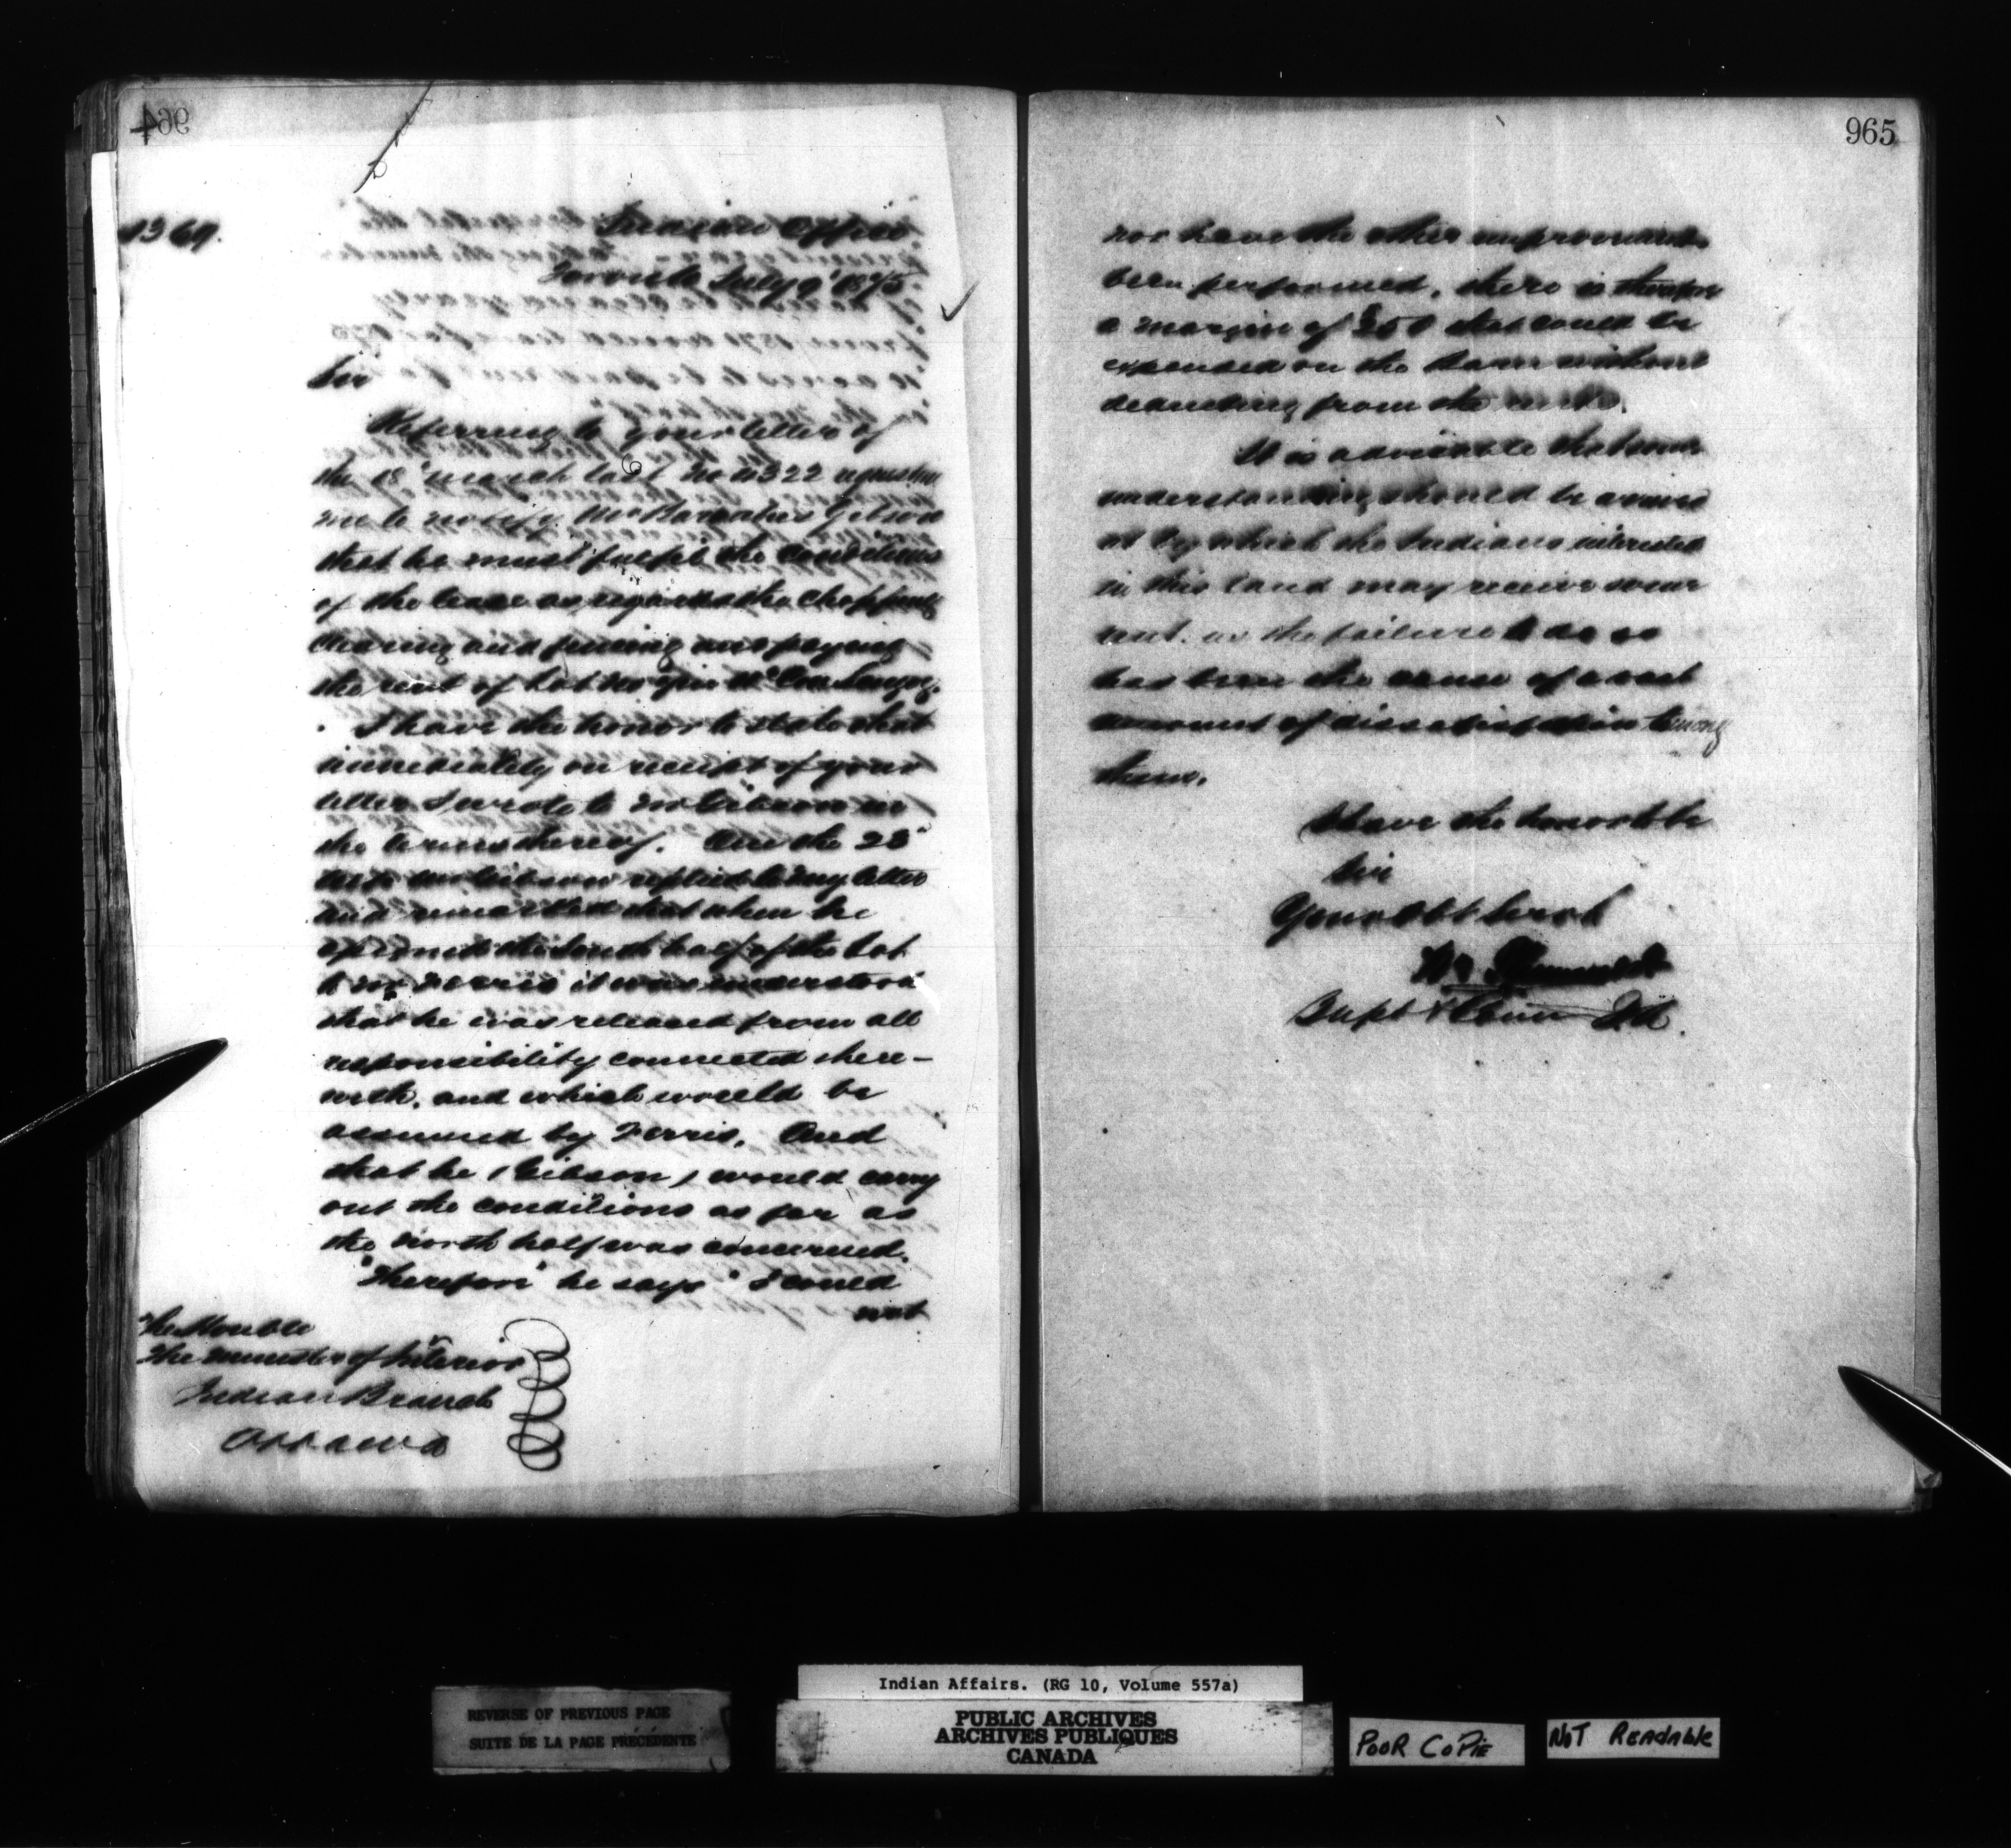 964
1369.
Indian Office
Toronto July 9 1875
Sir
Referring to your letter of
the 18 March last No 4322 requesting
me to notify Mr Gibson
that he must fulfil the conditions
of the lease as regards the chopping
clearing and fencing and paying
the rent of Lot No
I have the honor to state that
immediately on receipt of your
letter I wrote to Mr Gibson in
the terms thereof. On the 23
Mr Gibson replied to my letter
and remarked that when he
the South half of the Lot
to Mr Ferris it was understood
that he was released from all
responsibility connected there-
with, and which would be
assumed by Ferris. And
that he (Gibson) would carry
out the conditions as far as
the north half was concerned.
"Therefore" he says "I could
not
The Honble
The Minister of Interior
Indian Branch
Ottawa
965
nor have the other improvements
been performed, there is therefore
a margin of $250 that could be
expended on the same without
deducting from the
It is advisable that some
understanding should be arrived
at by which the Indians interested
in this land may receive some
rent. as the failure to do so
has been the cause of a vast
amount of dissatisfaction among
them.
I have the honor to be
Sir
Your Obt Servt
Wm
Supt & Comr I.A.
Indian Affairs. (RG 10, Volume 557a)
REVERSE OF PREVIOUS PAGE
SUITE DE LA PAGE PRÉCÉDENTE
PUBLIC ARCHIVES
ARCHIVES PUBLIQUES
CANADA
POOR COPIE
NOT READABLE